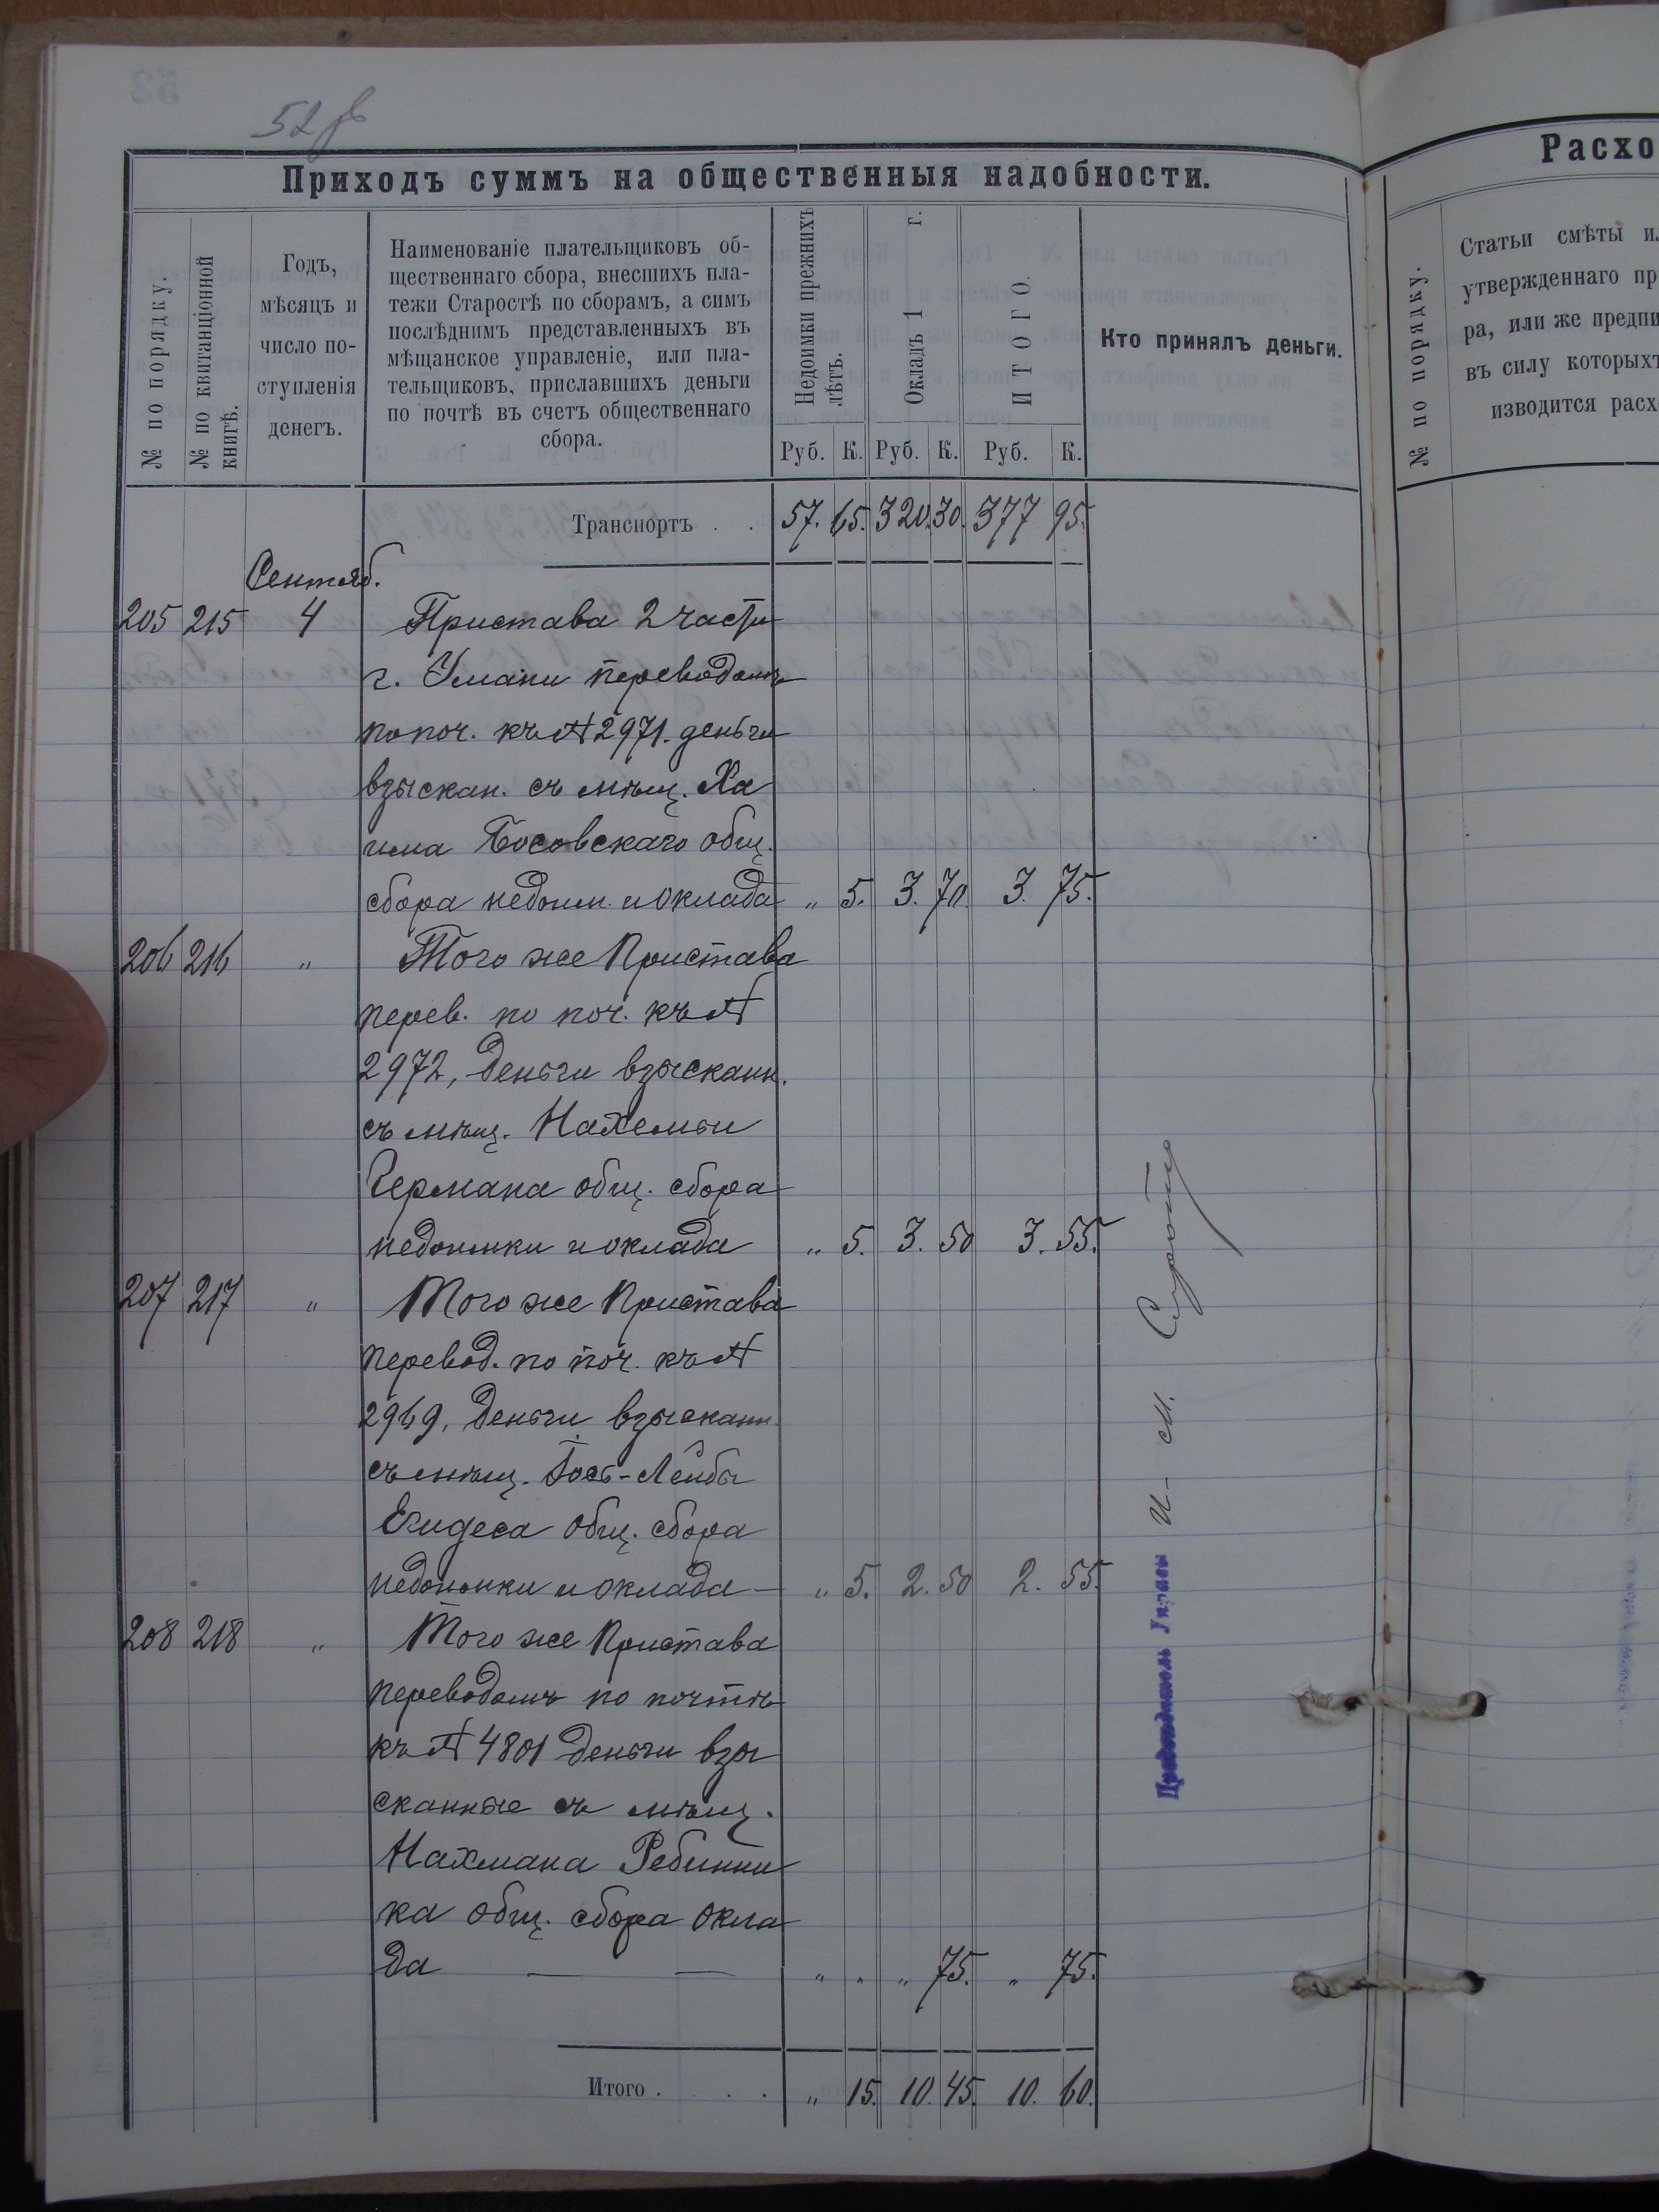 52 об
Приходъ суммъ на общественныя надобности.
№ по порядку.
№ по квитанціонной
книгѣ.
Годъ,
мѣсяцъ и
число по-
ступленія
денегъ.
Наименованіе плательщиковъ об-
щественнаго сбора, внесшихъ пла-
тежи Старостѣ по сборамъ, а симъ
послѣднимъ представленныхъ въ
мѣщанское управленіе, или пла-
тельщиковъ, приславшихъ деньги
по почтѣ въ счетъ общественнаго
сбора.
Недоимки прежнихъ
лѣтъ.
Окладъ 1 г.
ИТОГО.
Кто принялъ деньги.
Руб. К. Руб. К. Руб. К.
Транспортъ . . 57. 65. 320. 30. 377 95.
Сентяб.
205 215 4 Пристава 2 части
г. Умани переводомъ
по поч. къ № 2971. деньги
взыскан. съ мѣщ. Ха
има Босовскаго общ.
сбора недоим. и оклада „ 5. 3. 70. 3. 75.
206 216 „ Того же Пристава
перев. по поч. къ №
2972, деньги взысканн.
съ мѣщ. Нахемьи
Германа общ. сбора
недоимки и оклада „ 5. 3. 50 3. 55.
207 217 „ Того же Пристава
перевод. по поч. къ №
2969, деньги взысканн.
съ мѣщ. Іось-Лейбы
Егидеса общ. сбора
недоимки и оклада — „ 5. 2. 50 2. 55.
208 218 „ Того же Пристава
переводомъ по почтѣ
къ № 4801 деньги взы
сканные съ мѣщ.
Нахмана Ребинни
ка общ. сбора окла
да — — „ „ „ 75. „ 75.
Итого . . . . „ 15. 10. 45. 10. 60.
И - м.
Расхо
№ по порядку.
Статьи смѣты ил
утвержденнаго пр
ра, или же предпи
въ силу которыхъ
изводится расх